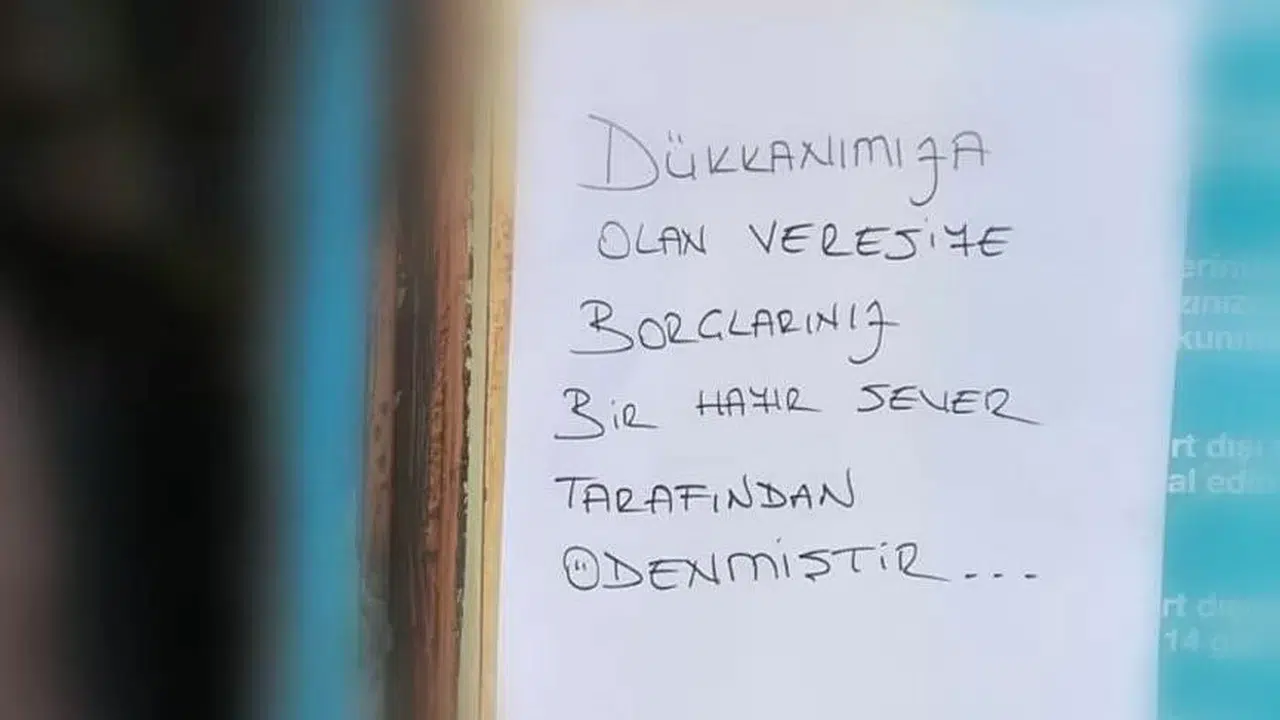 DÜKKANIMIZA
OLAN VERESİYE
BORÇLARINIZ
BİR HAYIR SEVER
TARAFINDAN
ÖDENMİŞTİR...
rt dışı
al edi
14 g